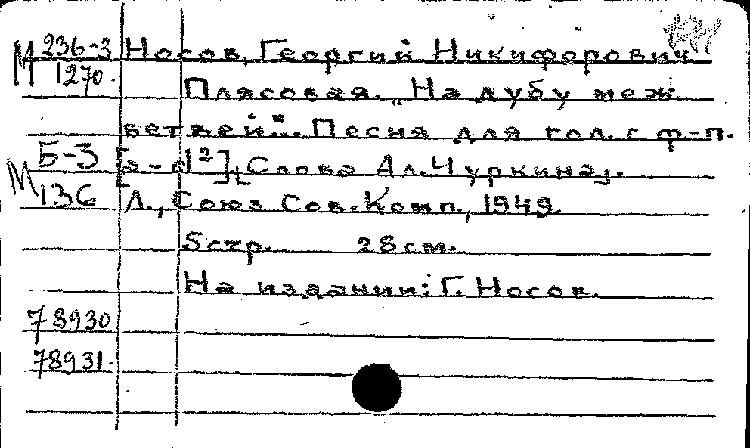 М 236-3 Носов, Георгий Никифорович
1270. Плясовая. "На дубу меж
ветвей". Песня для гол. с ф-п.
Б-3 Слова Ал. Чуркина].
М 136 Л., Союз Сов. Комп., 1949.
5 стр. 28 см.
На издании: Г. Носов.
78930
78931.